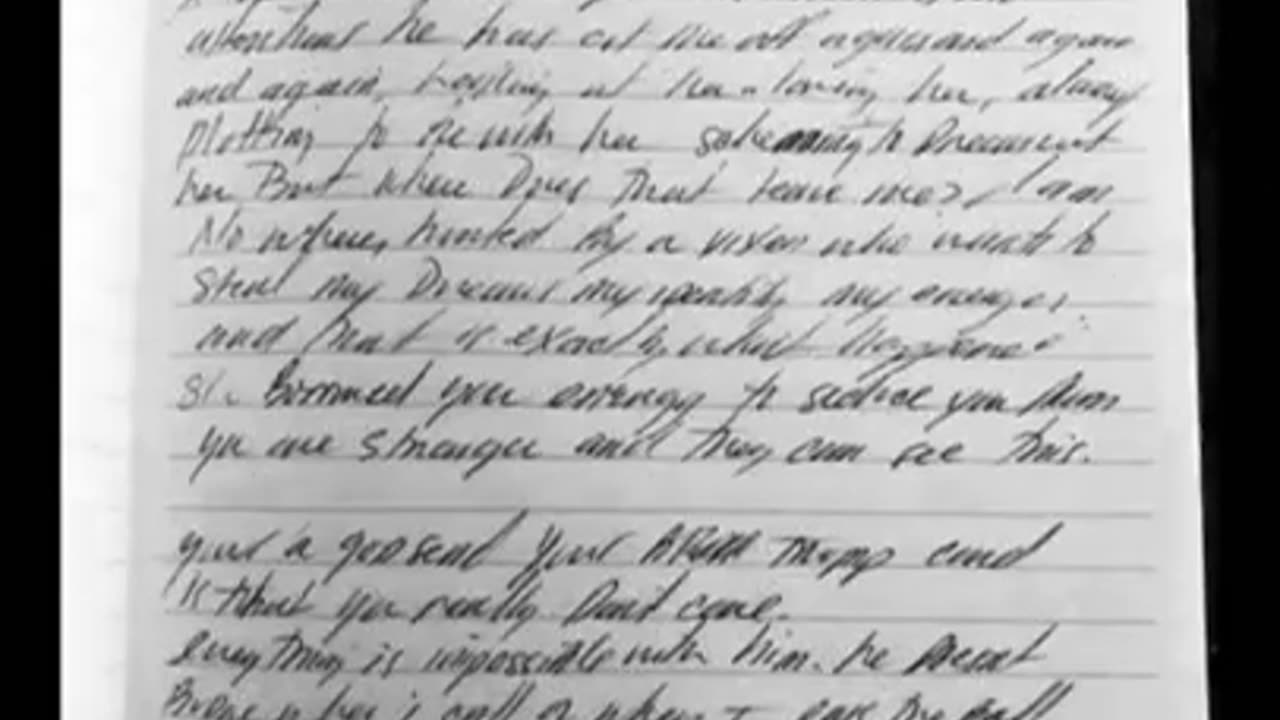 he has cut me off again and again
and again, looking at her, loving her, always
plotting to be with her scheming to Document
her But where Does that leave me? I am
No where, hunted by a vixen who wants to
steal my Dreams my identity my energy.
and that is exactly what happened
Borrowed your energy to seduce you then
you are stronger and they can see this.
your a godsend your trump card
is that you really Don't care.
everything is impossible with him. he Doesnt
call or when I the call